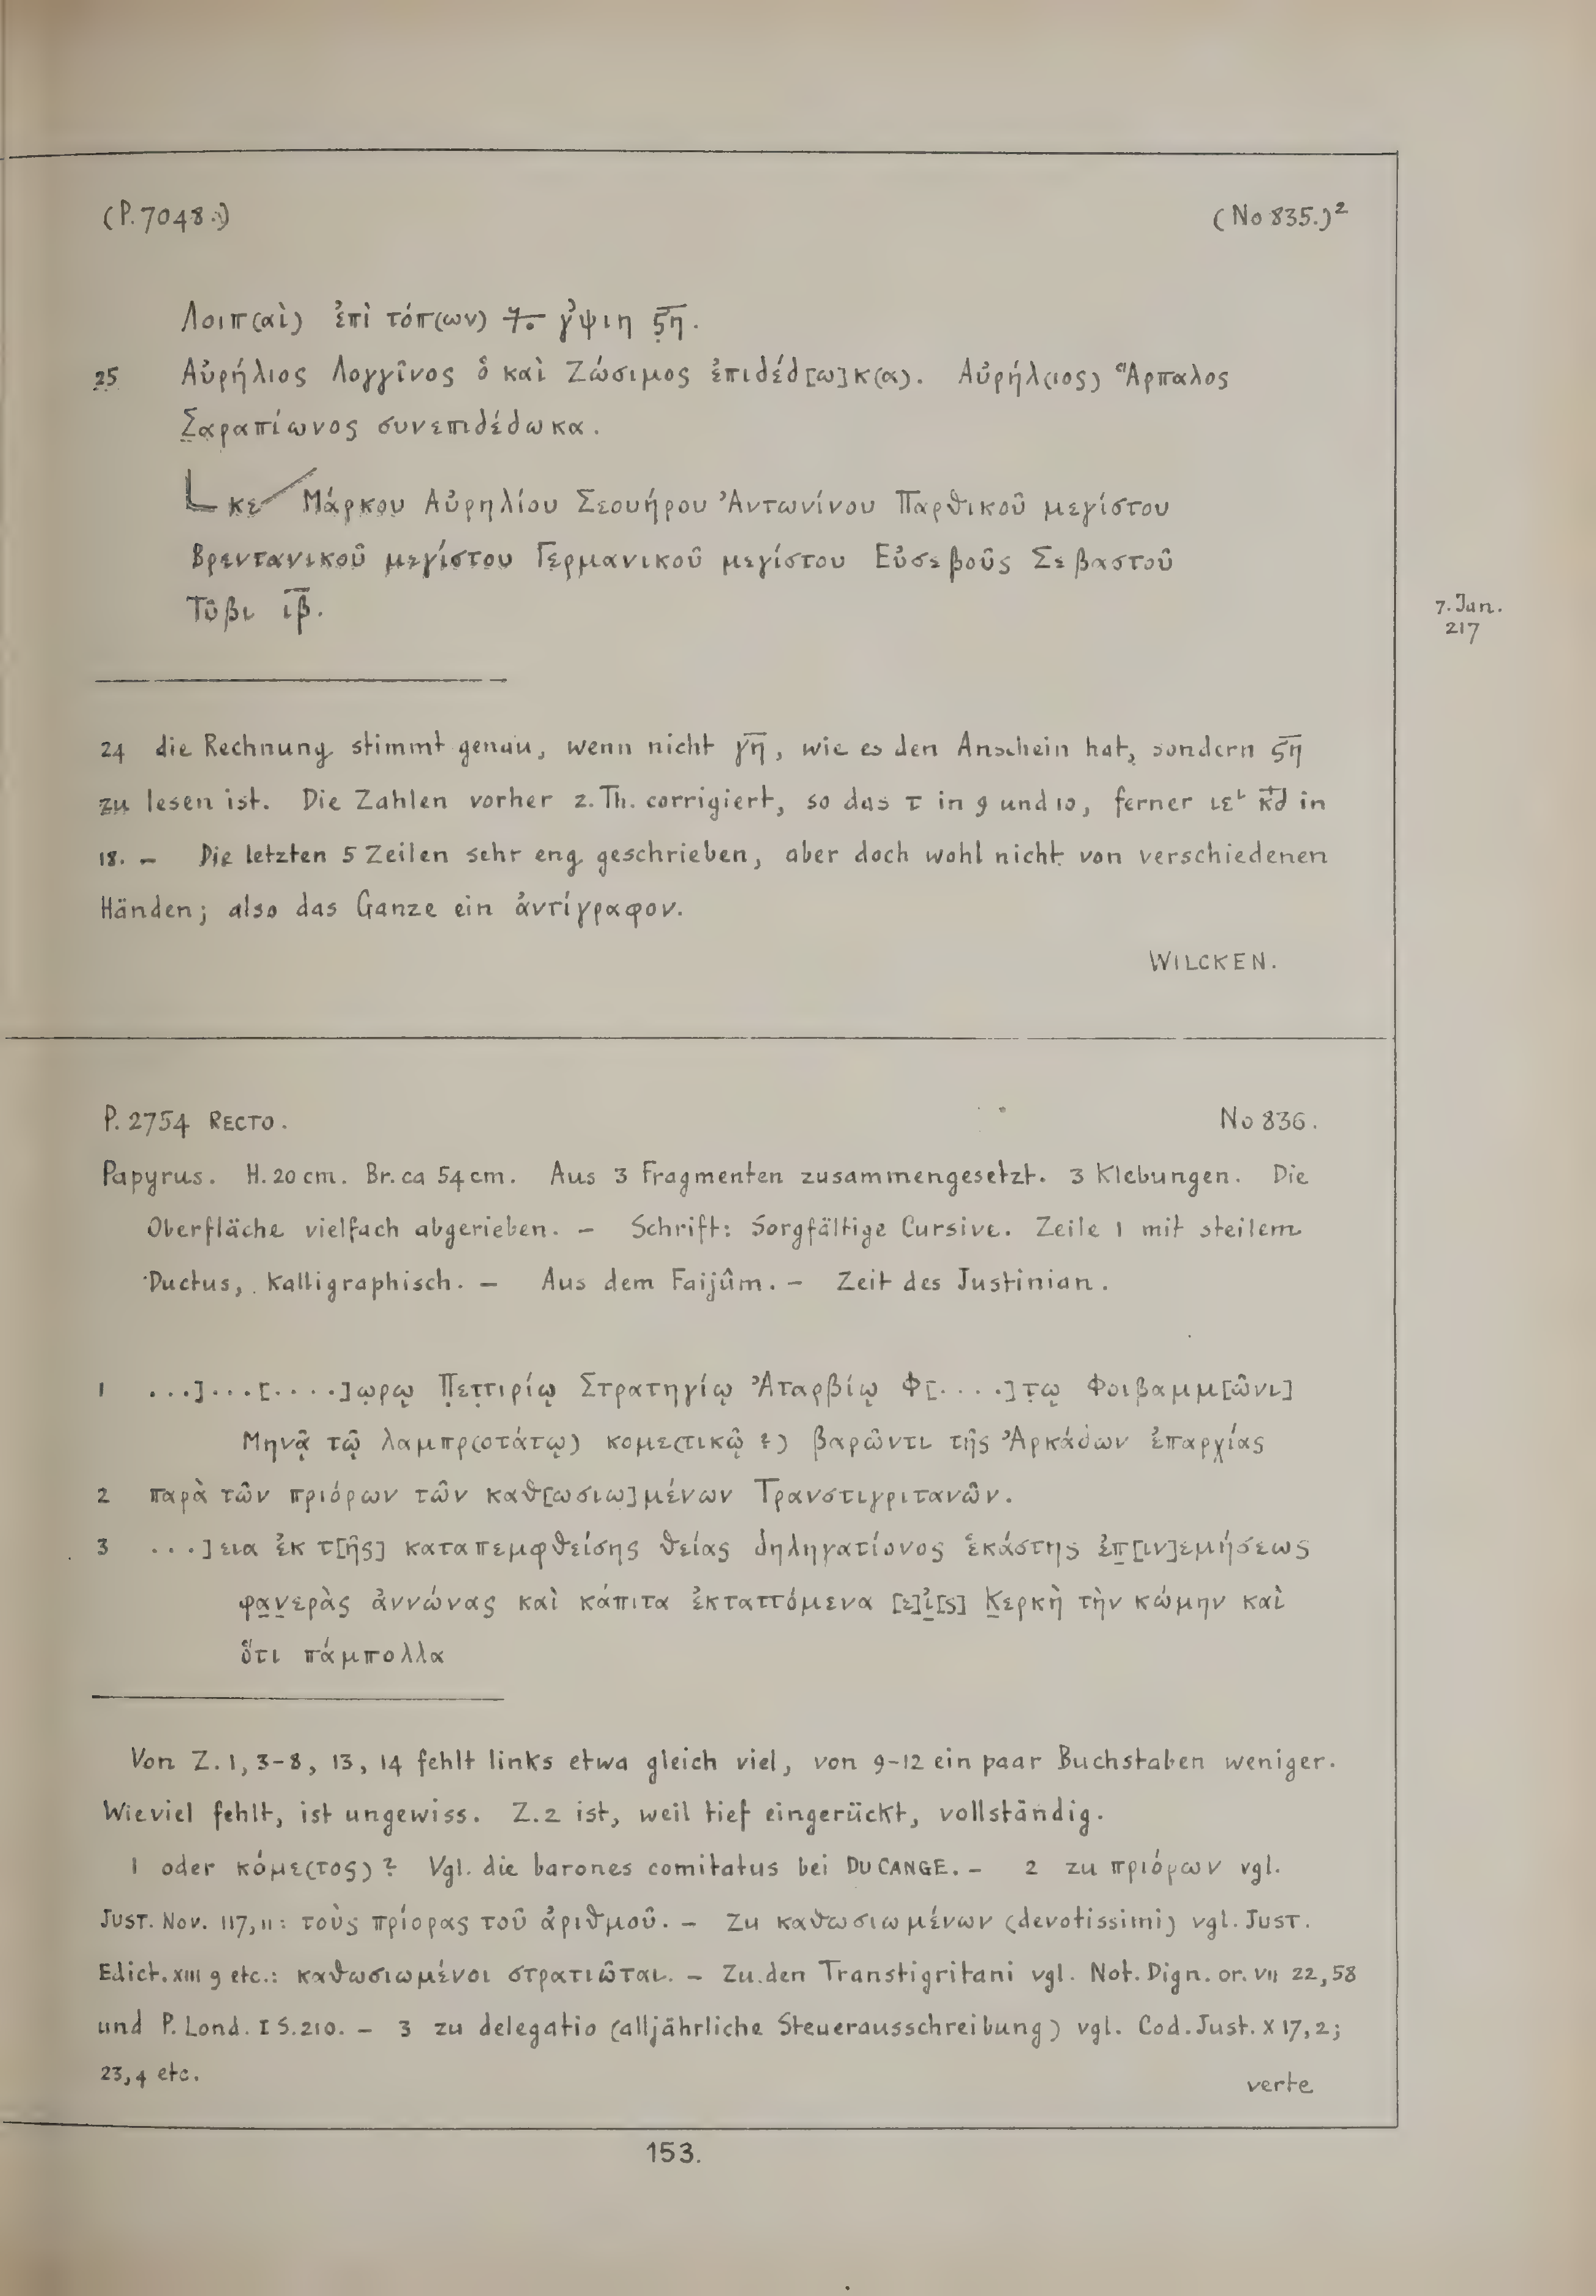 (P. 7048.) (No 835.)²
Λοιπ(αὶ) ἐπὶ τόπ(ων) γ̓ψιη ϛ̅η̅.
25 Αὐρήλιος Λογγῖνος ὁ καὶ Ζώσιμος ἐπιδέδ[ω]κ(α). Αὐρήλ(ιος) Ἅρπαλος
Σαραπίωνος συνεπιδέδωκα.
𐅹 κε ∕ Μάρκου Αὐρηλίου Σεουήρου Ἀντωνίνου Παρθικοῦ μεγίστου
Βρεντανικοῦ μεγίστου Γερμανικοῦ μεγίστου Εὐσεβοῦς Σεβαστοῦ
Τῦβι ι̅β̅.
7. Jan.
217
24 die Rechnung stimmt genau, wenn nicht γ̅η̅, wie es den Anschein hat, sondern ϛ̅η̅
zu lesen ist. Die Zahlen vorher z. Th. corrigiert, so das τ in 9 und 10, ferner ιεᴸ κ̅δ̅ in
18. – Die letzten 5 Zeilen sehr eng geschrieben, aber doch wohl nicht von verschiedenen
Händen; also das Ganze ein ἀντίγραφον.
WILCKEN.
P. 2754 RECTO. No 836.
Papyrus. H. 20 cm. Br. ca 54 cm. Aus 3 Fragmenten zusammengesetzt. 3 Klebungen. Die
Oberfläche vielfach abgerieben. – Schrift: Sorgfältige Cursive. Zeile 1 mit steilem
Ductus, kalligraphisch. – Aus dem Faijûm. – Zeit des Justinian.
1 ...]...[....]ω̣ρῳ Π̣ετ̣ιρίῳ Στρατηγίῳ Ἀταρβίῳ Φ[....]τ̣ῳ Φοιβαμμ[ῶνι]
Μηνᾷ τῷ λαμπρ(οτάτῳ) κομε(τικῷ ?) βαρῶντι τῆς Ἀρκάδων ἐπαρχίας
2 παρὰ τῶν πριόρων τῶν καθ[ωσιω]μένων Τρανστιγριτανῶν.
3 ...]εια ἐκ τ[ῆς] καταπεμφθείσης θείας δηληγατίονος ἑκάστης ἐπ̣[ιν]εμήσεως
φα̣ν̣ερὰς ἀννώνας καὶ κάπιτα ἐκταττόμενα [ε]ἰ̣[ς] Κ̣ερκὴ τὴν κώμην καὶ
ὅτι πάμπολλα
Von Z. 1, 3–8, 13, 14 fehlt links etwa gleich viel, von 9–12 ein paar Buchstaben weniger.
Wieviel fehlt, ist ungewiss. Z. 2 ist, weil tief eingerückt, vollständig.
1 oder κόμε(τος) ? Vgl. die barones comitatus bei DU CANGE. – 2 zu πριόρων vgl.
JUST. Nov. 117, 11: τοὺς πρίορας τοῦ ἀριθμοῦ. – Zu καθωσιωμένων (devotissimi) vgl. JUST.
Edict. XIII 9 etc.: καθωσιωμένοι στρατιῶται. – Zu den Transtigritani vgl. Not. Dign. or. VII 22, 58
und P. Lond. I S. 210. – 3 zu delegatio (alljährliche Steuerausschreibung) vgl. Cod. Just. X 17, 2;
23, 4 etc.
verte
153.